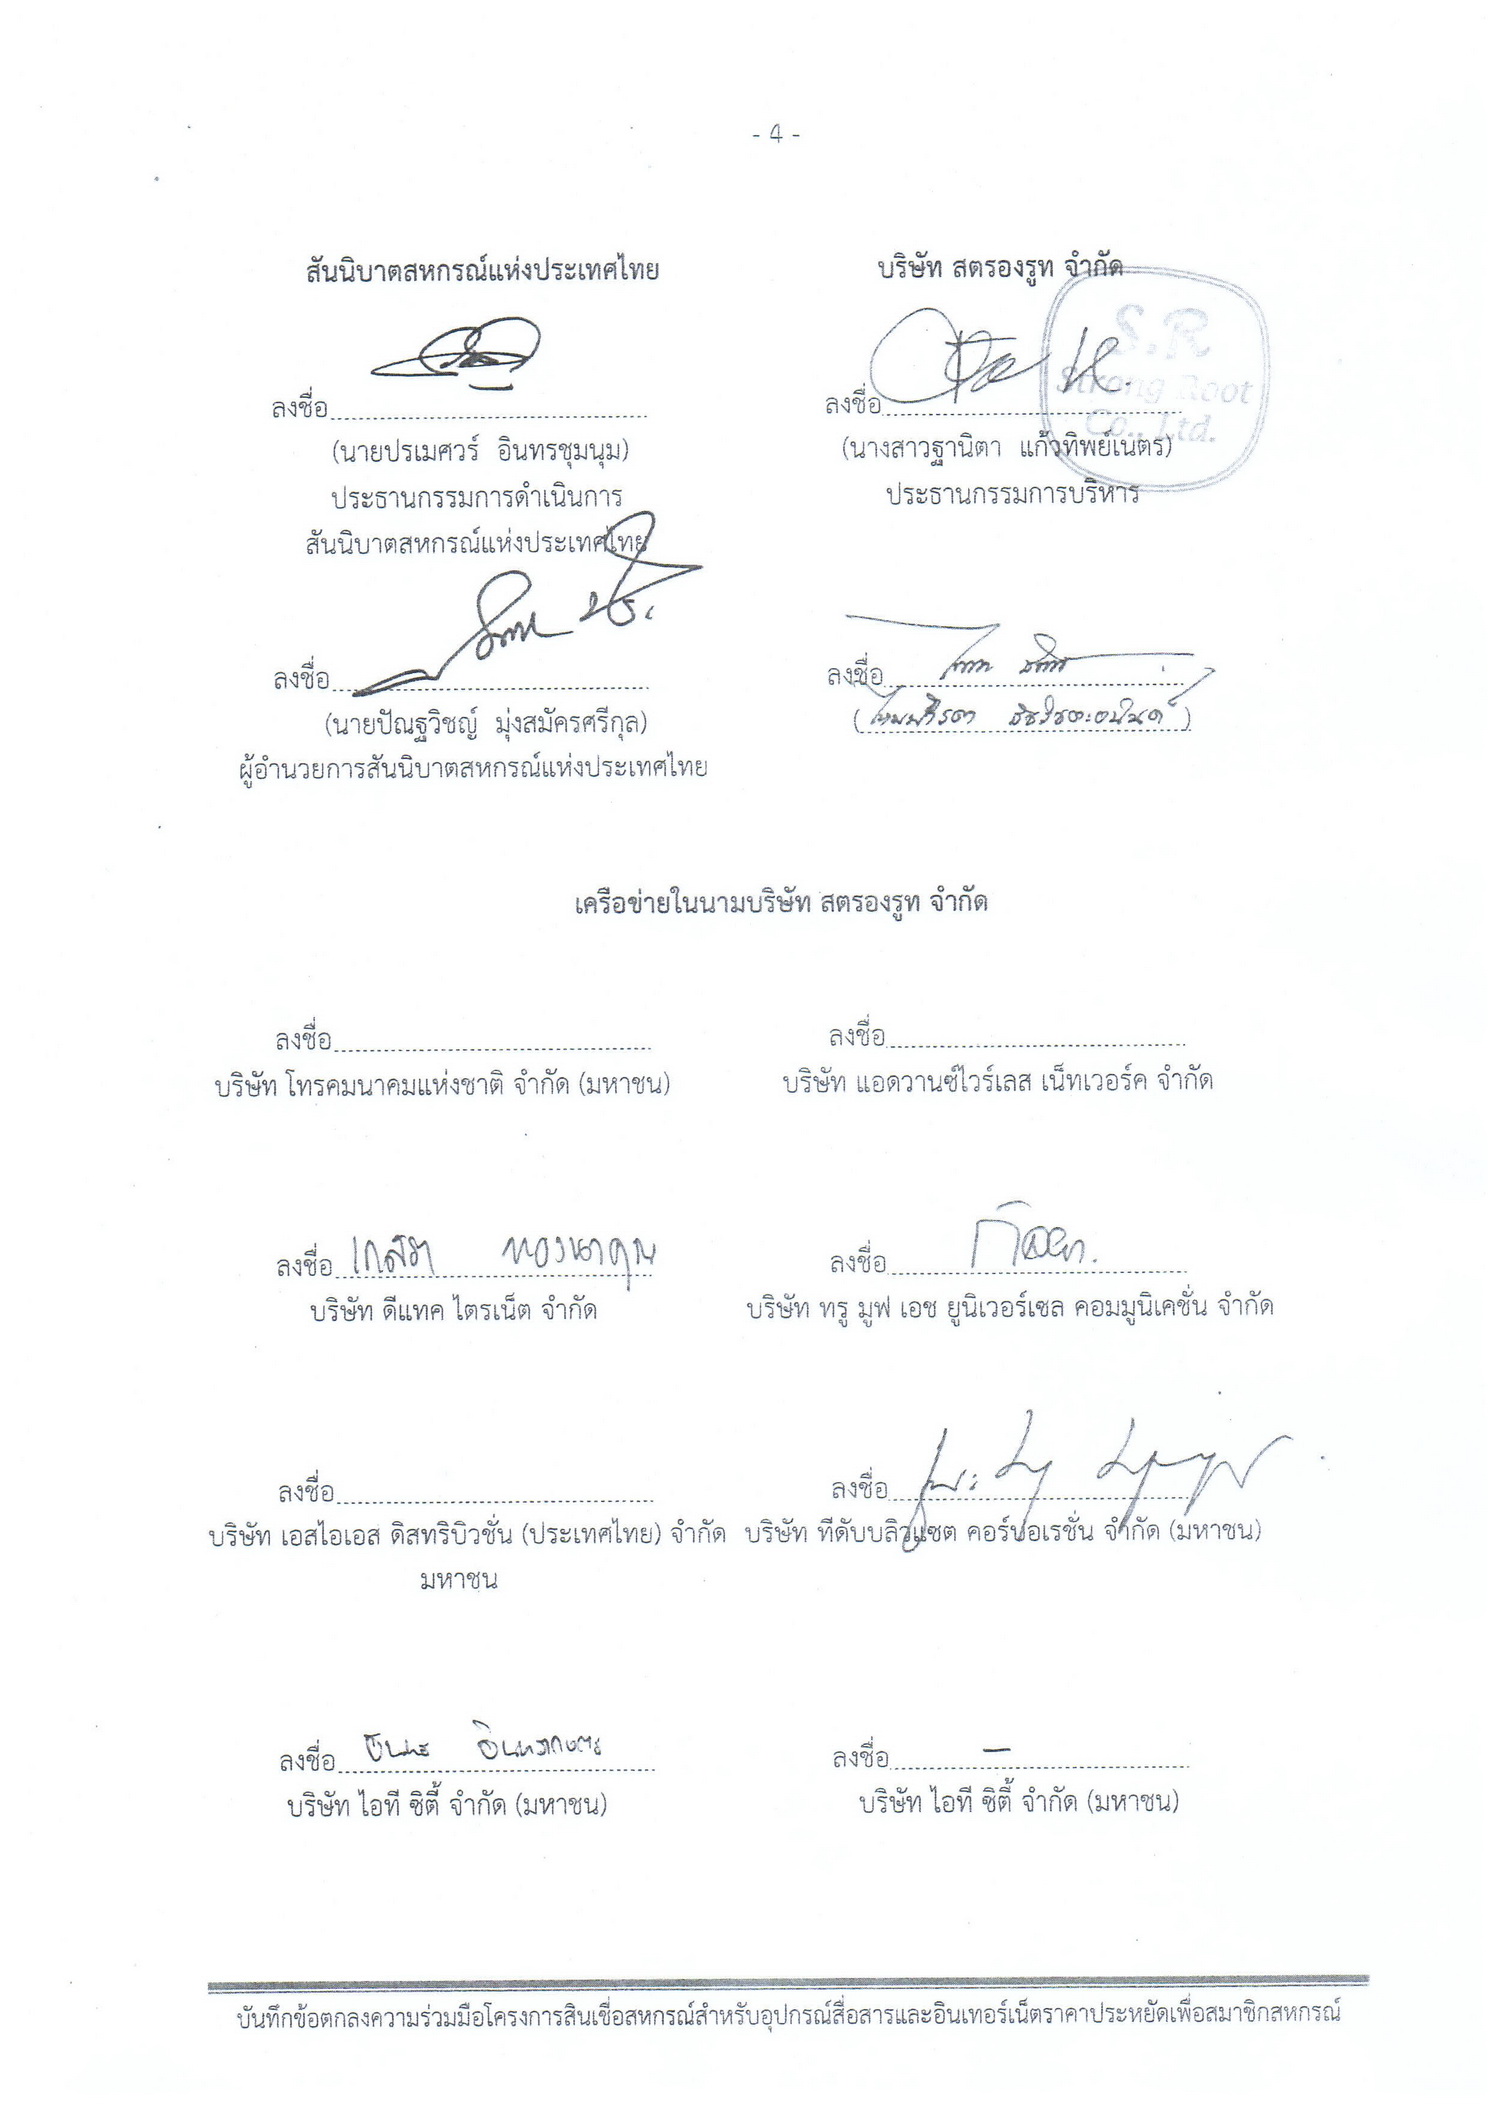 - 4 -
สันนิบาตสหกรณ์แห่งประเทศไทย
บริษัท สตรองรูท จำกัด
S.R
Strong Root
Co., Ltd.
ลงชื่อ
ลงชื่อ
(นายปรเมศวร์ อินทรชุมนุม)
(นางสาวฐานิตา แก้วทิพย์เนตร)
ประธานกรรมการดำเนินการ
ประธานกรรมการบริหาร
สันนิบาตสหกรณ์แห่งประเทศไทย
ลงชื่อ
ลงชื่อ
(นายปัณฐวิชญ์ มุ่งสมัครศรีกุล)
ผู้อำนวยการสันนิบาตสหกรณ์แห่งประเทศไทย
เครือข่ายในนามบริษัท สตรองรูท จำกัด
ลงชื่อ
ลงชื่อ
บริษัท โทรคมนาคมแห่งชาติ จำกัด (มหาชน)
บริษัท แอดวานซ์ไวร์เลส เน็ทเวอร์ค จำกัด
ลงชื่อ
ลงชื่อ
บริษัท ดีแทค ไตรเน็ต จำกัด
บริษัท ทรู มูฟ เอช ยูนิเวอร์เซล คอมมูนิเคชั่น จำกัด
ลงชื่อ
ลงชื่อ
บริษัท เอสไอเอส ดิสทริบิวชั่น (ประเทศไทย) จำกัด
มหาชน
บริษัท ทีดับบลิวแซต คอร์ปอเรชั่น จำกัด (มหาชน)
ลงชื่อ
ลงชื่อ -
บริษัท ไอที ซิตี้ จำกัด (มหาชน)
บริษัท ไอที ซิตี้ จำกัด (มหาชน)
บันทึกข้อตกลงความร่วมมือโครงการสินเชื่อสหกรณ์สำหรับอุปกรณ์สื่อสารและอินเทอร์เน็ตราคาประหยัดเพื่อสมาชิกสหกรณ์